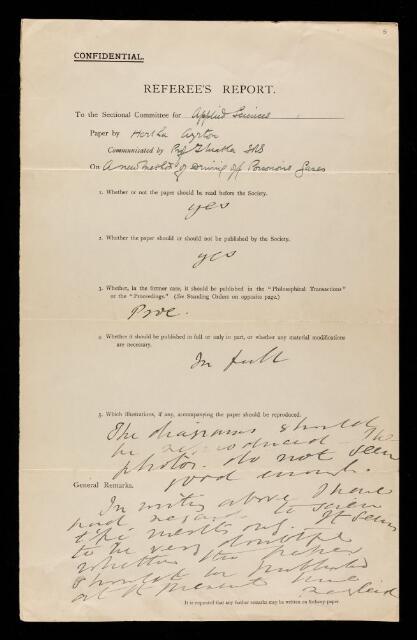 5
CONFIDENTIAL.
REFEREE'S REPORT.
To the Sectional Committee for Applied Sciences
Paper by Hertha Ayrton
Communicated by Prof FRS
On A new method of Driving off Poisonous Gases
1. Whether or not the paper should be read before the Society.
yes
2. Whether the paper should or should not be published by the Society.
yes
3. Whether, in the former case, it should be published in the "Philosophical Transactions"
or the "Proceedings." (See Standing Orders on opposite page.)
Proc.
4. Whether it should be published in full or only in part, or whether any material modifications
are necessary.
In full
5. Which illustrations, if any, accompanying the paper should be reproduced.
The diagrams should
be reproduced - The
photos. do not seem
good enough.
General Remarks.
In writing above I have
had regard to scien
tific merits only. It seems
to be very doubtful
whether the paper
should be published
at the present time
It is requested that any further remarks may be written on foolscap paper.